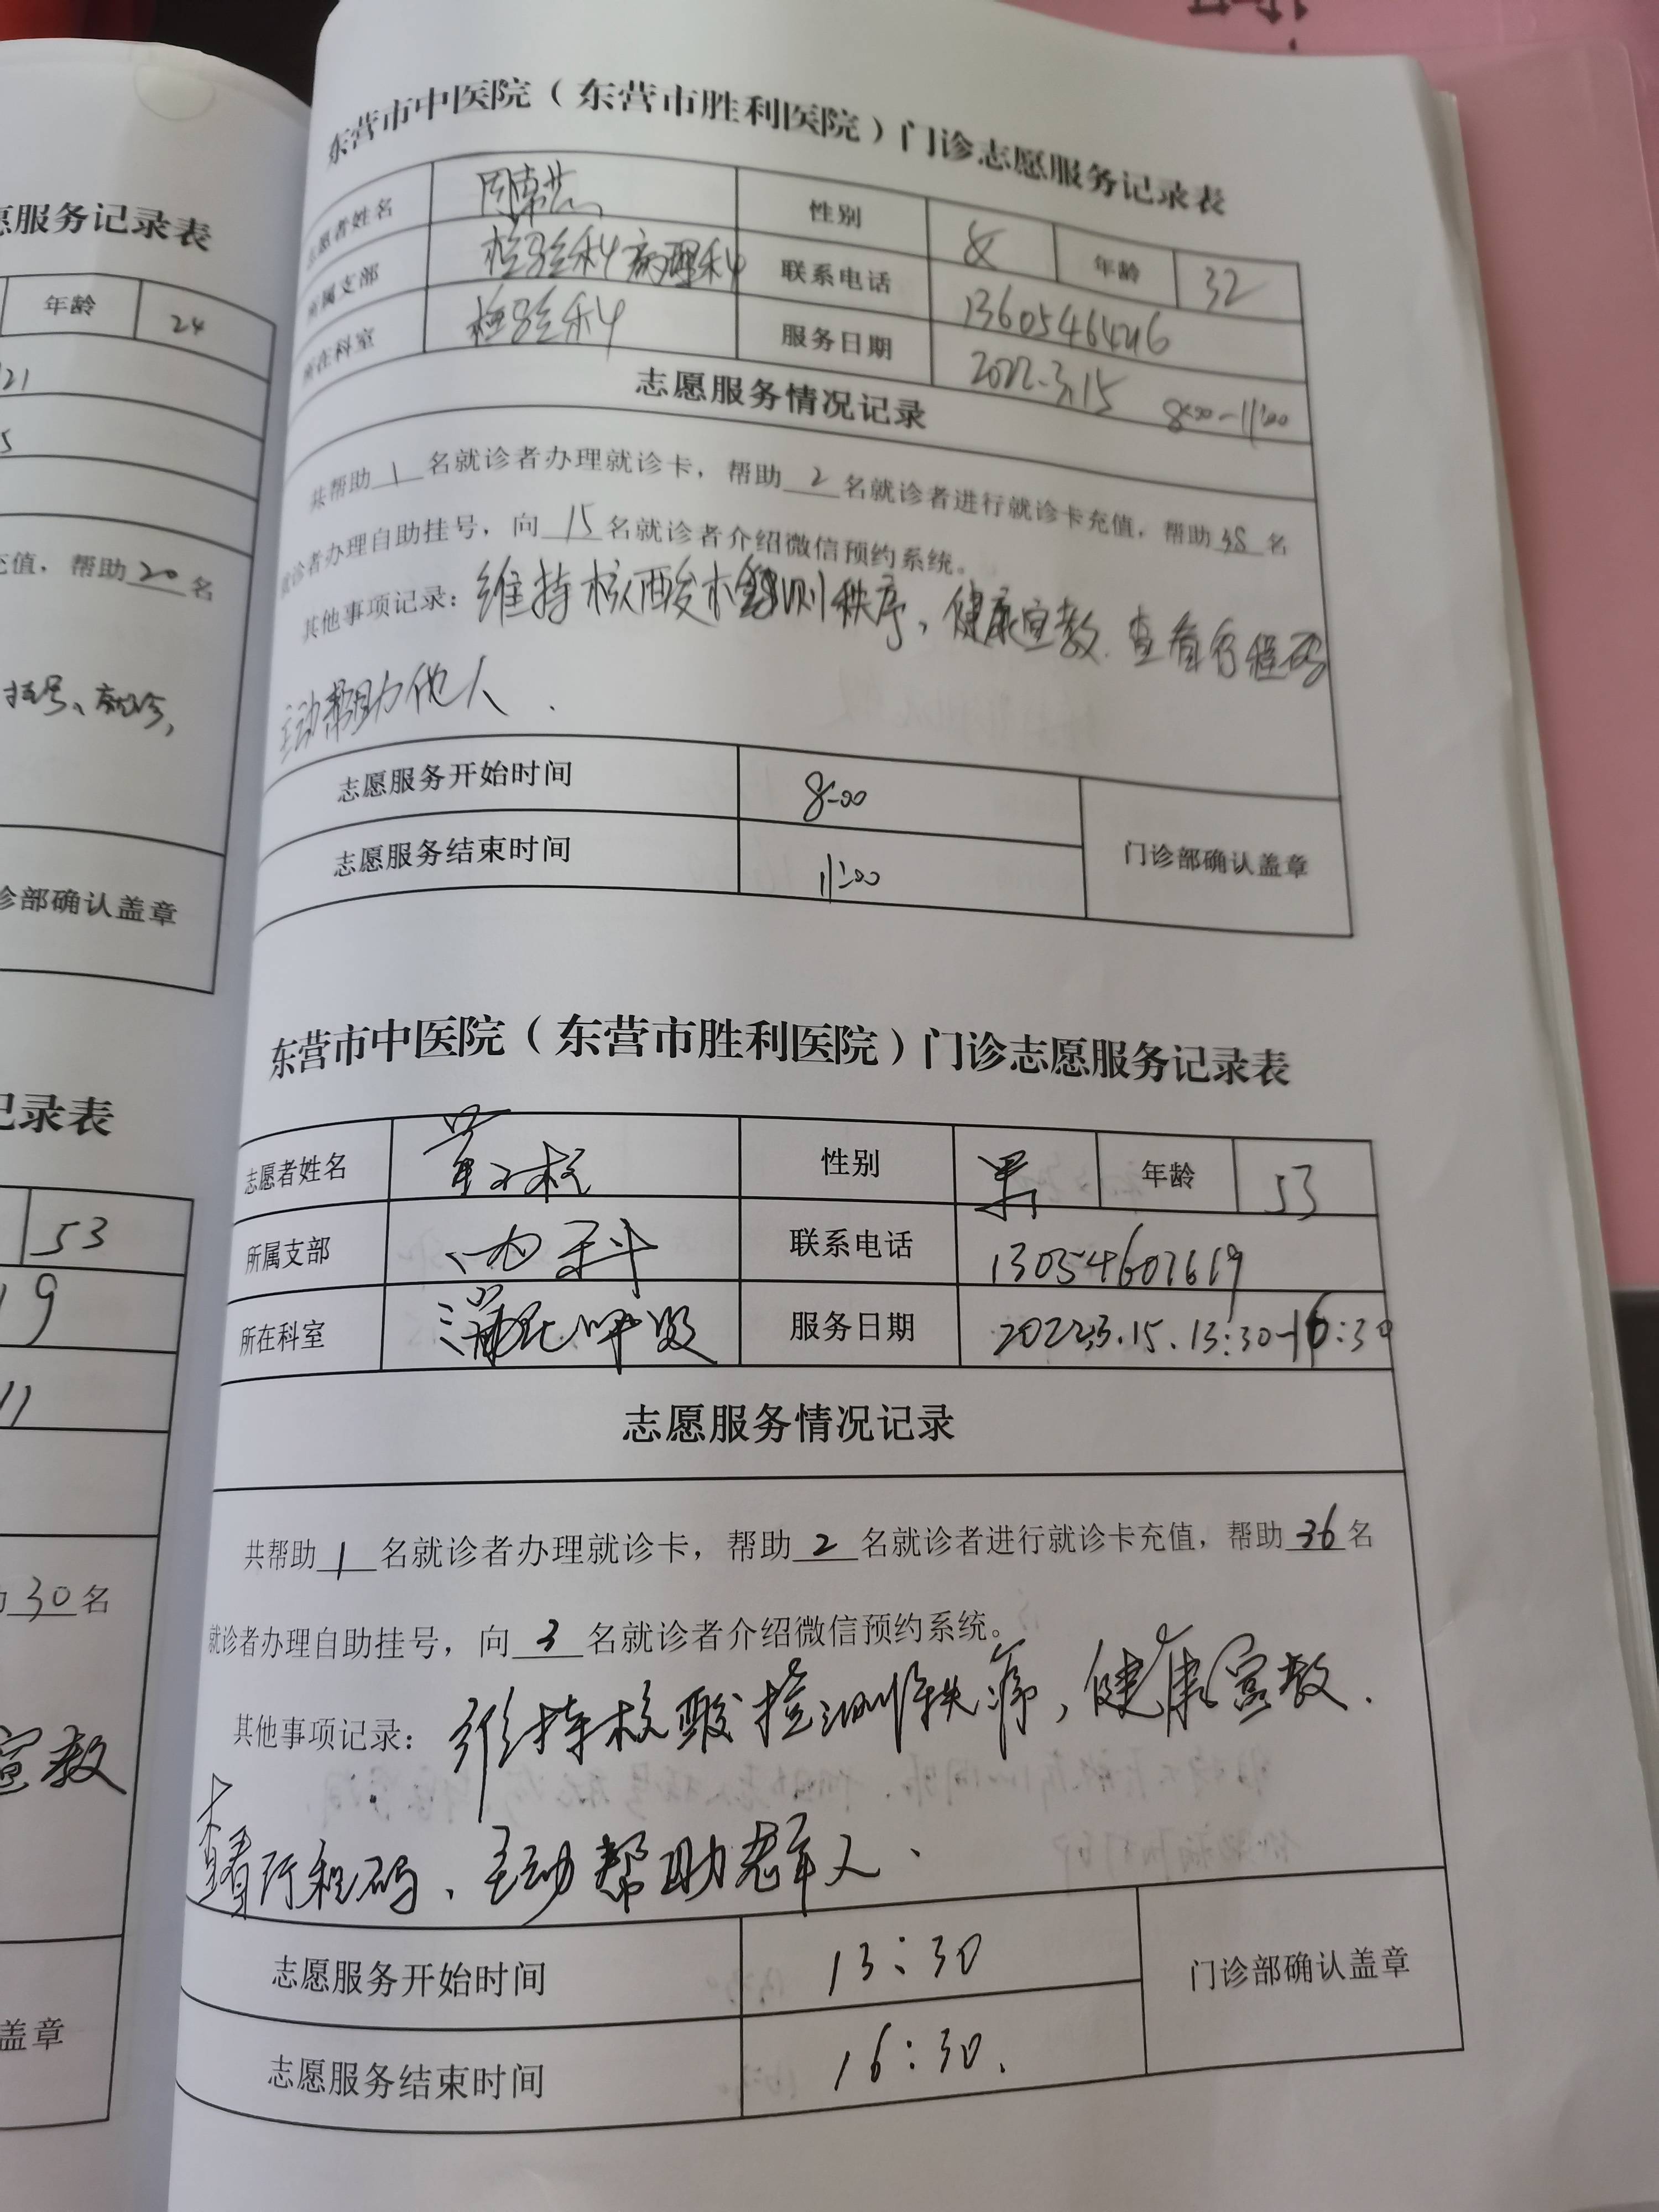 愿服务记录表
年龄 24
21
5
充值，帮助 20 名
挂号、就诊，
诊部确认盖章
记录表
53
19
11
30 名
宣教
盖章
东营市中医院（东营市胜利医院）门诊志愿服务记录表
志愿者姓名 性别 女 年龄 32
所属支部 检验科病理科 联系电话
所在科室 检验科 服务日期 2022.3.15 8:00-11:00
志愿服务情况记录
共帮助 1 名就诊者办理就诊卡，帮助 2 名就诊者进行就诊卡充值，帮助 38 名
就诊者办理自助挂号，向 15 名就诊者介绍微信预约系统。
其他事项记录：维持核酸检测秩序，健康宣教、查看行程码
主动帮助他人．
志愿服务开始时间 8:00
志愿服务结束时间 11:00
门诊部确认盖章
东营市中医院（东营市胜利医院）门诊志愿服务记录表
志愿者姓名 性别 男 年龄 53
所属支部 内科 联系电话 13054607619
所在科室 呼吸 服务日期 2022.3.15.13:30-16:30
志愿服务情况记录
共帮助 1 名就诊者办理就诊卡，帮助 2 名就诊者进行就诊卡充值，帮助 36 名
就诊者办理自助挂号，向 3 名就诊者介绍微信预约系统。
其他事项记录：维持核酸检测秩序，健康宣教．
查看行程码、主动帮助老年人．
志愿服务开始时间 13:30
志愿服务结束时间 16:30.
门诊部确认盖章